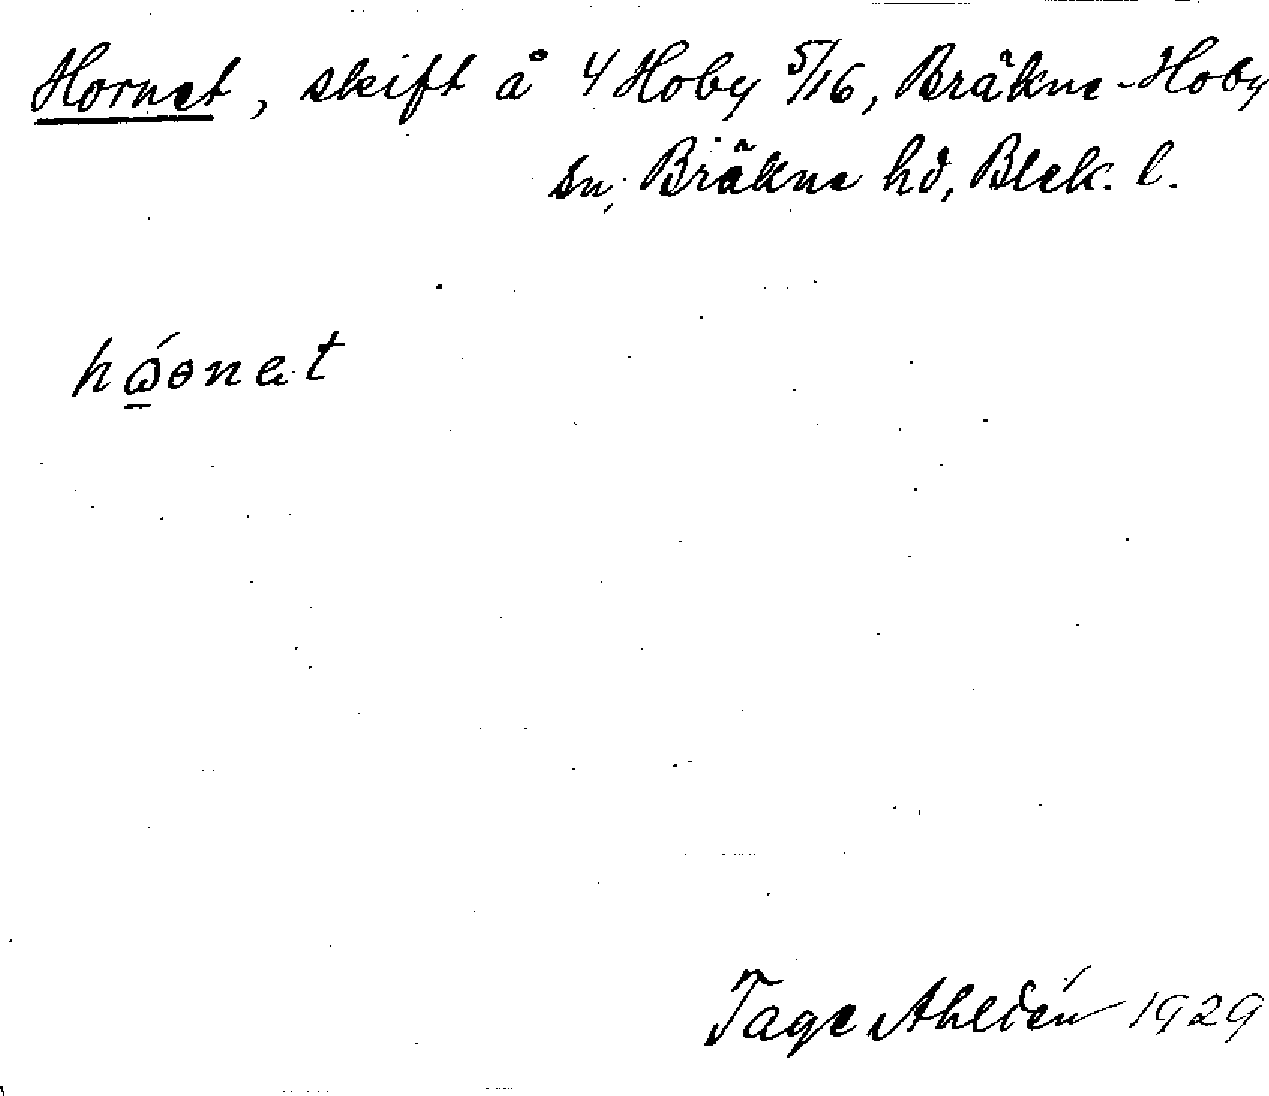 Hornet, skift å 4 Hoby 5/16, Bräkne-Hoby
sn, Bräkne hd, Blek. l.
Tage Ahldén 1929